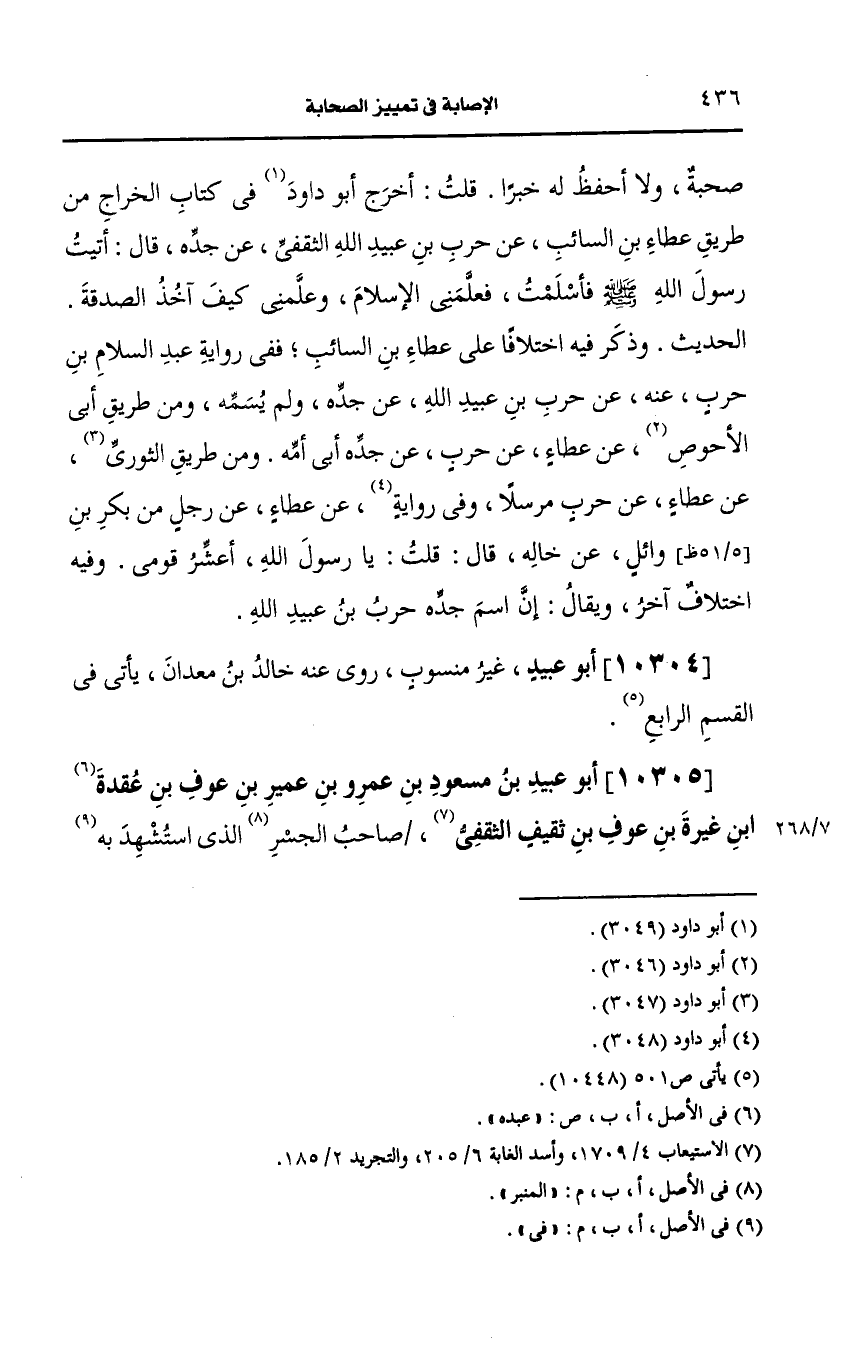 ٤٣٦
الإصابة فى تمييز الصحابة
صحبةٌ ، ولا أحفظُ له خبرًا . قلتُ : أخرَج أبو داودَ(١) فى كتابِ الخراجِ من
طريقِ عطاءِ بنِ السائبِ ، عن حربِ بنِ عبيدِ اللهِ الثقفىِّ ، عن جدِّه ، قال : أتيتُ
رسولَ اللهِ ﷺ فأسْلَمْتُ ، فعلَّمَنِى الإسلامَ ، وعلَّمنِى كيفَ آخُذُ الصدقةَ .
الحديث . وذكَر فيه اختلافًا على عطاءِ بنِ السائبِ ؛ ففى روايةِ عبدِ السلامِ بنِ
حربٍ ، عنه ، عن حربِ بنِ عبيدِ اللهِ ، عن جدِّه ، ولم يُسَمِّه ، ومن طريقِ أبى
الأحوصِ(٢) ، عن عطاءٍ ، عن حربٍ ، عن جدِّه أبى أمِّه . ومن طريقِ الثورىِّ(٣) ،
عن عطاءٍ ، عن حربٍ مرسلًا ، وفى روايةٍ(٤) ، عن عطاءٍ ، عن رجلٍ من بكرِ بنِ
[٥١/٥ظ] وائلٍ ، عن خالِه ، قال : قلتُ : يا رسولَ اللهِ ، أعشِّرُ قومى . وفيه
اختلافٌ آخرُ ، ويقالُ : إنَّ اسمَ جدِّه حربُ بنُ عبيدِ اللهِ .
[١٠٣٠٤] أبو عبيدٍ ، غيرُ منسوبٍ ، روى عنه خالدُ بنُ معدانَ ، يأتى فى
القسمِ الرابعِ(٥) .
[١٠٣٠٥] أبو عبيدِ بنُ مسعودِ بنِ عمرِو بنِ عميرِ بنِ عوفِ بنِ عُقدةَ(٦)
٢٦٨/٧ ابنِ غيرةَ بنِ عوفِ بنِ ثقيفٍ الثقفىُّ(٧) ، /صاحبُ الجسْرِ(٨) الذى استُشْهِدَ به(٩)
(١) أبو داود (٣٠٤٩) .
(٢) أبو داود (٣٠٤٦) .
(٣) أبو داود (٣٠٤٧) .
(٤) أبو داود (٣٠٤٨) .
(٥) يأتى ص٥٠١ (١٠٤٤٨) .
(٦) فى الأصل ، أ ، ب ، ص : «عبده» .
(٧) الاستيعاب ٤/ ١٧٠٩، وأسد الغابة ٦/ ٢٠٥، والتجريد ٢/ ١٨٥.
(٨) فى الأصل ، أ ، ب ، م : «المنبر» .
(٩) فى الأصل ، أ ، ب ، م : «فى» .